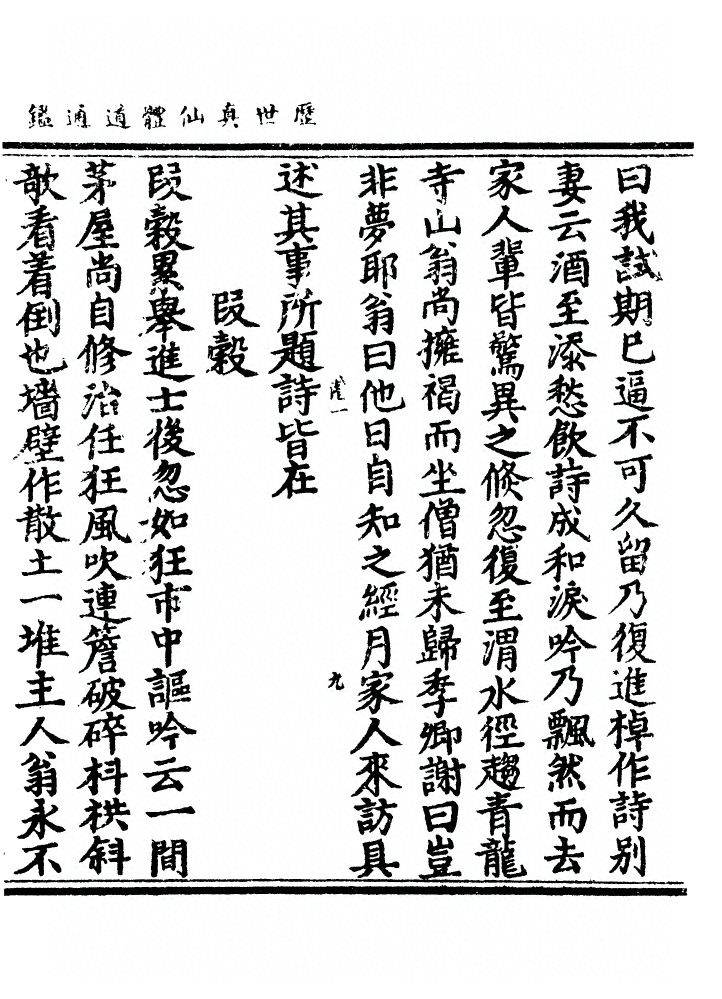 歷世真仙體道通鑑
曰我試期已逼不可久留乃復進棹作詩别
妻云酒至添愁飲詩成和淚吟乃飄然而去
家人輩皆驚異之倐忽復至渭水徑趨青龍
寺山翁尚擁褐而坐僧猶未歸季卿謝曰豈
非夢耶翁曰他日自知之經月家人來訪具
九
述其事所題詩皆在
段穀
段穀累舉進士後忽如狂市中謳吟云一間
茅屋尚自修治任狂風吹連簷破碎枓栱斜
欹看着倒也墻壁作散土一堆主人翁永不